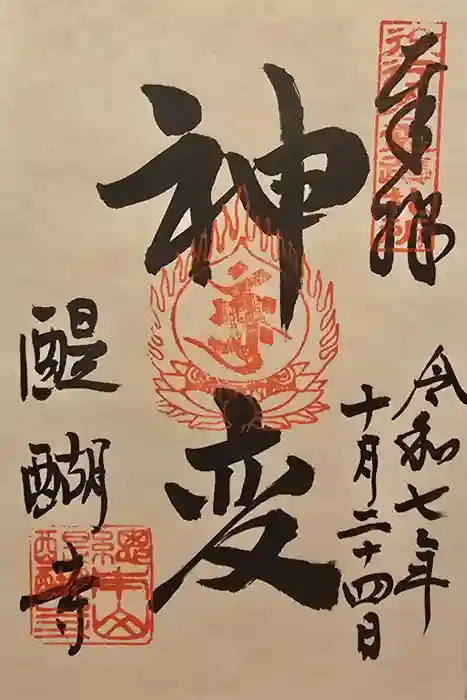 奉拝
令和七年
十月二十四日
神変
醍醐寺